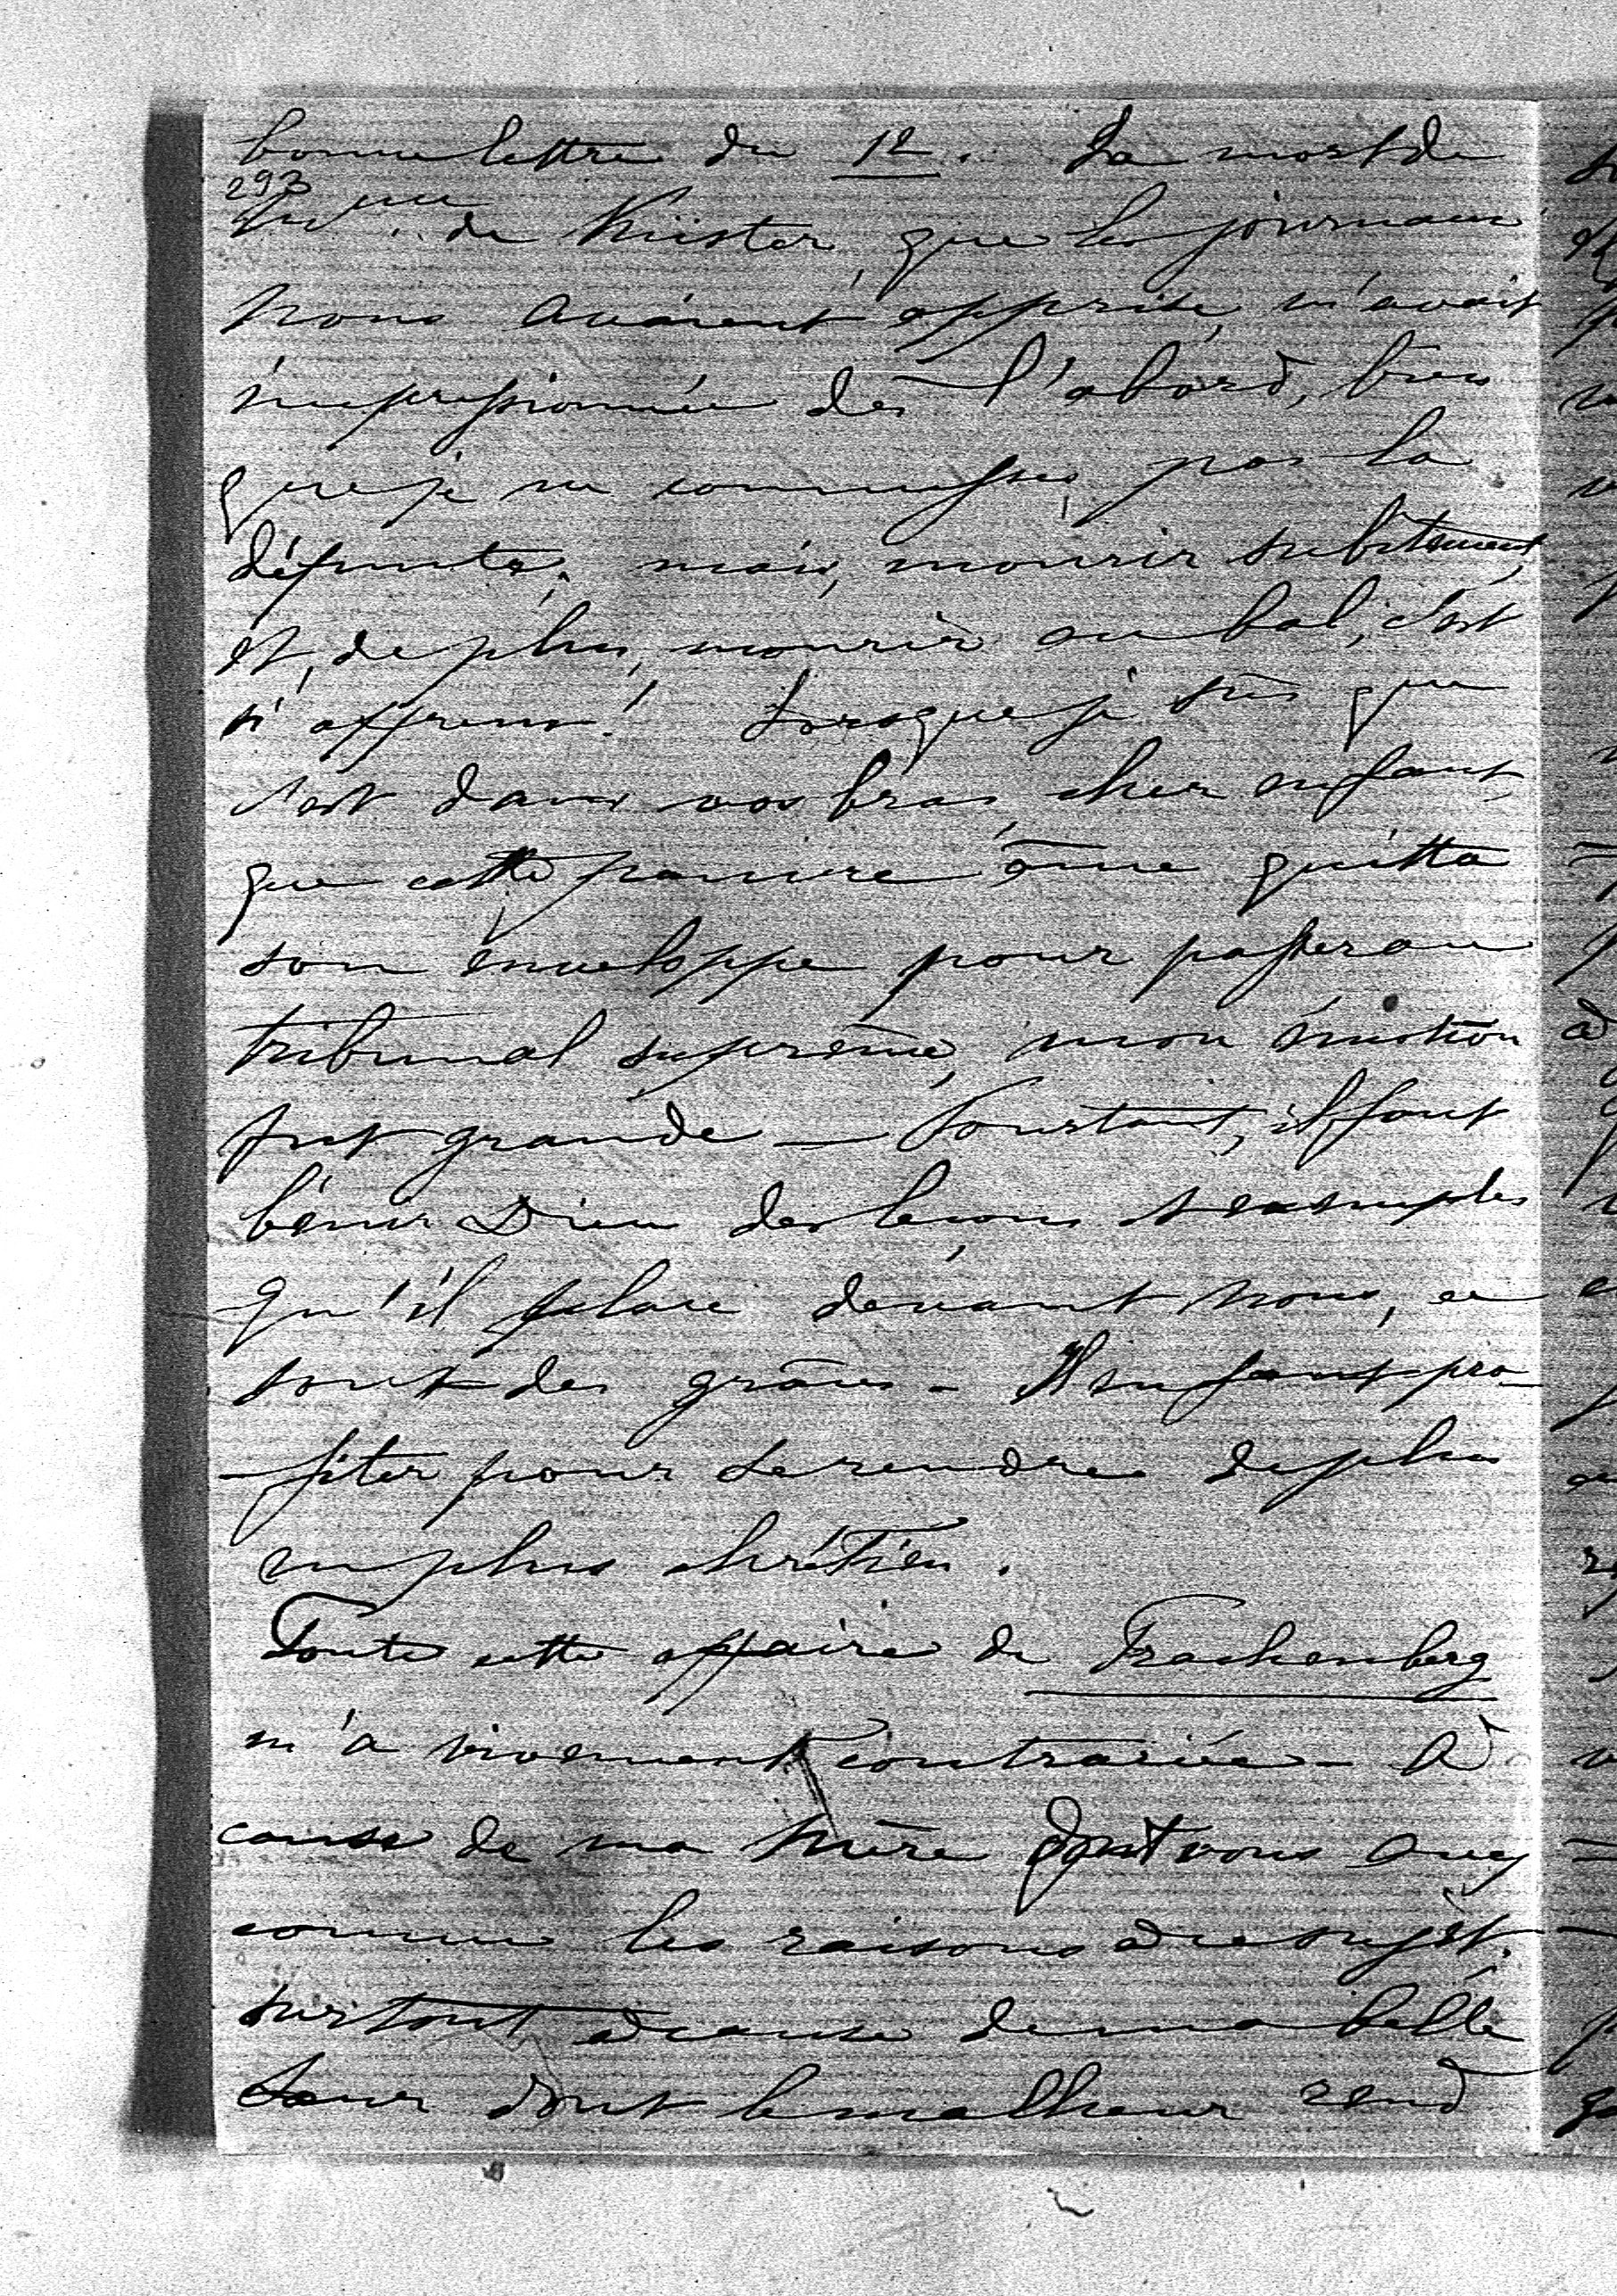 bonne lettre du 12. La mort de
293
Mme. de Küster, que les journaux
nous avaient apprise, m'avait
impressionnée dès l'abord, bien
que je ne connusse, pas la
défunte; mais, mourir subitement,
et, de plus, mourir au bal, c'est
si affreux! Lorsque je sus que
c'est dans vos bras, cher enfant,
que cette pauvre âme quitta
son enveloppe pour passer au
tribunal suprême, mon émotion
fut grande — Pourtant, il faut
bénir Dieu des leçons et exemples
qu'il place devant nous, ce
sont des grâces - Il en faut pro-
-fiter pour se rendre de plus
en plus chrétien.
Toute cette affaire de Trachenberg
m'a vivement contrariée - à
cause de ma mère dont vous avez
connu les raisons à ce sujet.
surtout à cause de ma belle
sœur dont le malheur rend